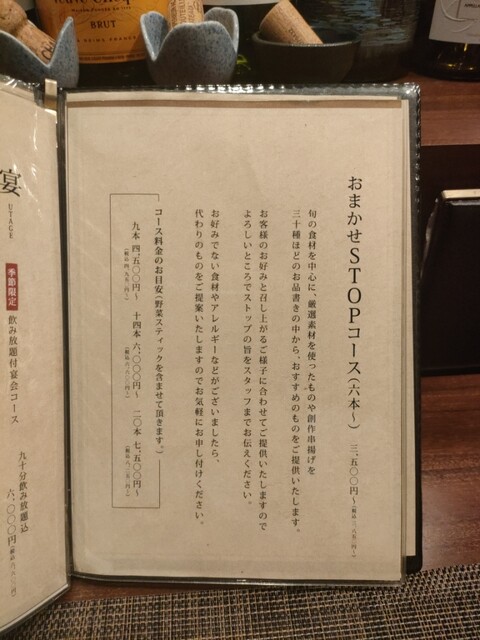 おまかせSTOPコース（六本〜） 三、五〇〇円〜（税込三、八五〇円〜）
旬の食材を中心に、厳選素材を使ったものや創作串揚げを
三十種ほどのお品書きの中から、おすすめのものをご提供いたします。
お客様のお好みと召し上がるご様子に合わせてご提供いたしますので
よろしいところでストップの旨をスタッフまでお伝えください。
お好みでない食材やアレルギーなどがございましたら、
代わりのものをご提案いたしますのでお気軽にお申し付けください。
コース料金のお目安（野菜スティックを含ませて頂きます。）
九本 四、五〇〇円〜 十四本 六、〇〇〇円〜 二〇本 七、五〇〇円〜
（税込四、九五〇円〜） （税込六、六〇〇円〜） （税込八、二五〇円〜）
宴
UTAGE
季節限定 飲み放題付宴会コース
九十分飲み放題込
六、〇〇〇円（税込六、六〇〇円）
BRUT